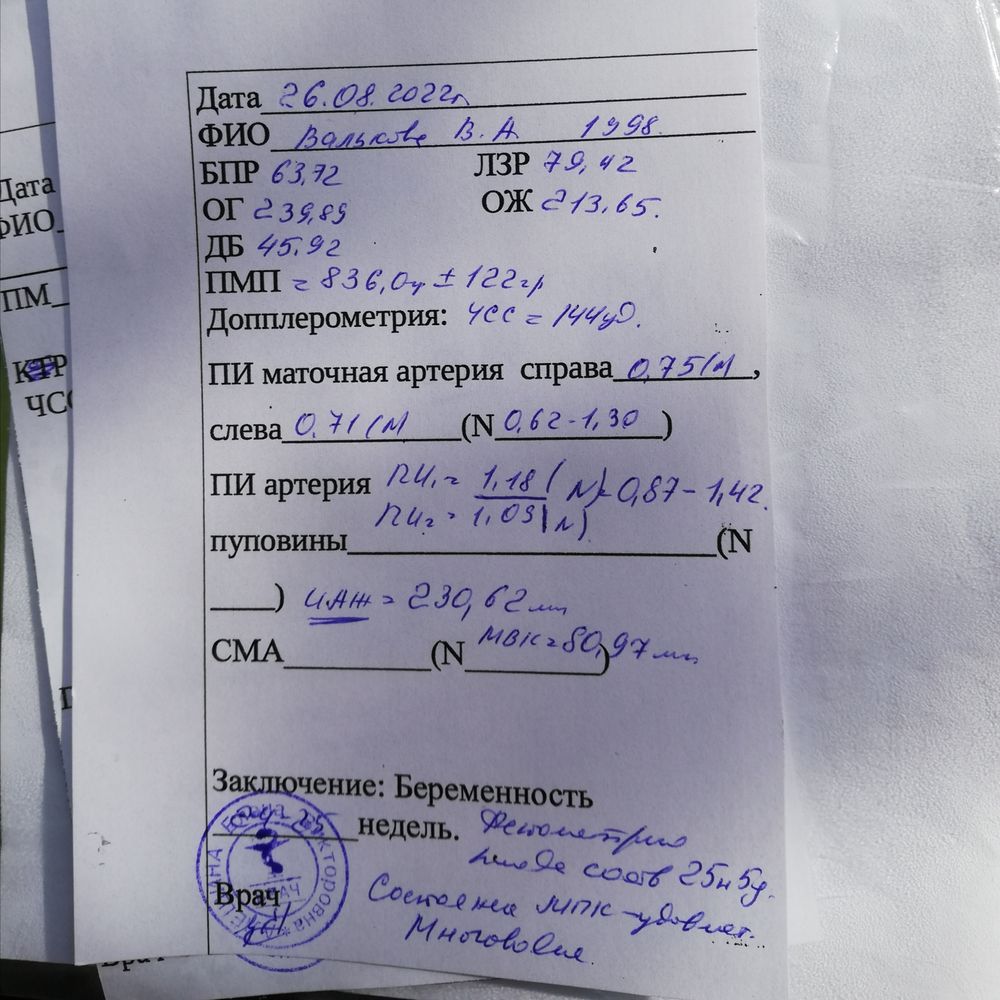 Дата 26.08.2022г
ФИО Валькова В.А 1998.
БПР 63,72 ЛЗР 79,42
ОГ 239,89 ОЖ 213,65.
ДБ 45.92
ПМП = 836,0гр ± 122гр
Допплерометрия: ЧСС = 144уд.
ПИ маточная артерия справа 0,75(N),
слева 0,71(N (N 0,62-1,30 )
ПИ артерия ПИ1 = 1,18 (N) 0,87-1,42.
ПИ2 = 1,09(N)
пуповины (N
) ИАЖ = 230,62мм
СМА (N ) МВК=80,97мм
Заключение: Беременность
24-25 недель. Фетометрия
плода соотв 25н5д.
Врач Состояние МПК-удовлет.
Многоводие.
Дата
ФИО
ПМ
КТР
ЧСС